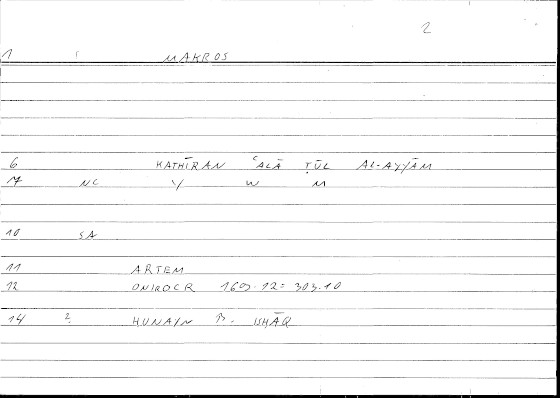 2
1 MAKROS
6 KATHĪRAN ʿALĀ ṬŪL AL-AYYĀM
17 NC Y W M
10 SA
11 ARTEM
12 ONIROCR 169.12 = 303.10
14 2 ḤUNAYN B. ISḤĀQ